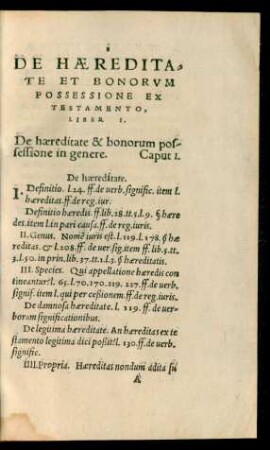 1
DE HÆREDITA-
TE ET BONORVM
POSSESSIONE EX
TESTAMENTO,
LIBER I.
De hæreditate & bonorum pos-
sessione in genere. Caput I.
De hæreditate.
I. Definitio. l.24. ff. de verb. signific. item l.
hæreditas. ff. de reg. iur.
Definitio hæredis ff. lib. 28. tt. 5. l.9. § hære
des. item l. in pari causa. ff. de reg. iuris.
II. Genus. Nomē iuris est. l.119. l.178. § hæ
reditas. & l.208. ff. de ver. sig. item ff. lib. 5. tt.
3. l.50. in prin. lib. 37. tt. 1. l.3. § hæreditatis.
III. Species. Qui appellatione hæredis con
tineantur? l. 65. l.70. 170. 219. 227. ff. de verb.
signif. item l. qui per cessionem. ff. de reg. iuris.
De damnosa hæreditate. l. 119. ff. de ver-
borum significationibus.
De legitima hæreditate. An hæreditas ex te
stamento legitima dici possit? l. 130. ff. de verb.
signific.
IIII. Propria. Hæreditas nondum adita su
A